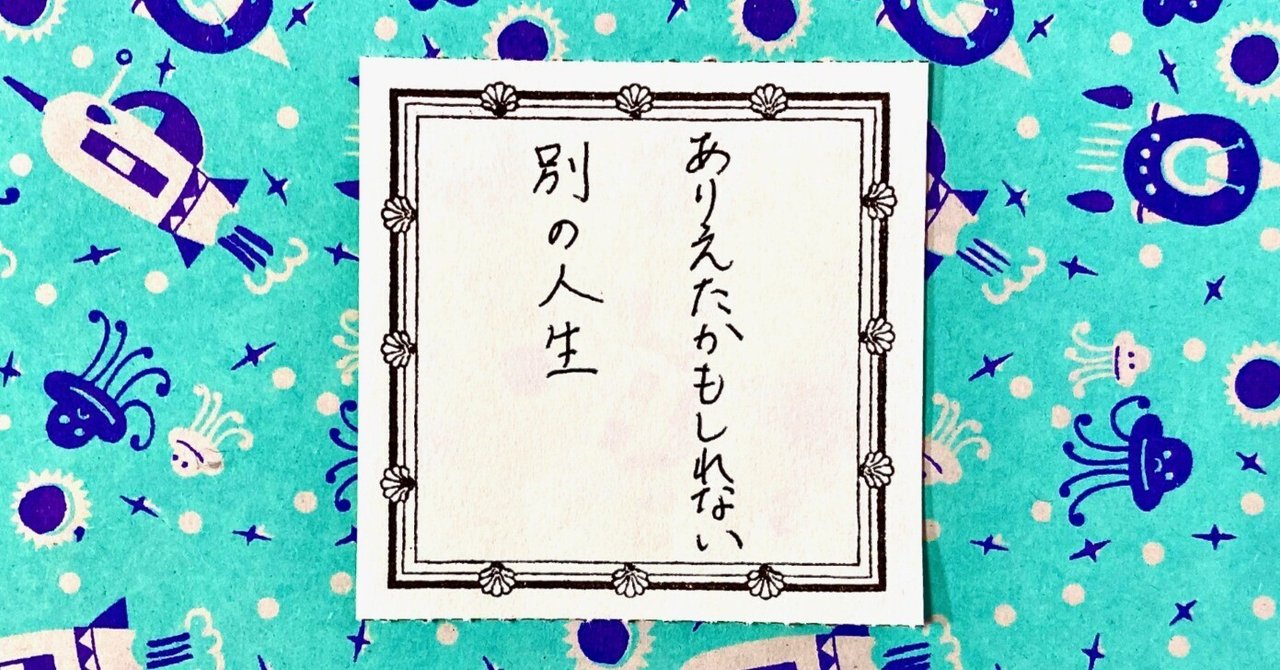 ありえたかもしれない
別の人生